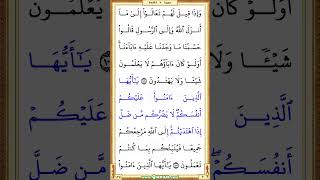 وَإِذَا قِيلَ لَهُمْ تَعَالَوْا۟ إِلَىٰ مَآ
أَنزَلَ ٱللَّهُ وَإِلَى ٱلرَّسُولِ قَالُوا۟
حَسْبُنَا مَا وَجَدْنَا عَلَيْهِ ءَابَآءَنَآ
أَوَلَوْ كَانَ ءَابَآؤُهُمْ لَا يَعْلَمُونَ
شَيْـًٔا وَلَا يَهْتَدُونَ ۝ يَـٰٓأَيُّهَا
ٱلَّذِينَ ءَامَنُوا۟ عَلَيْكُمْ
أَنفُسَكُمْ ۖ لَا يَضُرُّكُم مَّن ضَلَّ
إِذَا ٱهْتَدَيْتُمْ ۚ إِلَى ٱللَّهِ مَرْجِعُكُمْ
جَمِيعًا فَيُنَبِّئُكُم بِمَا كُنتُمْ
تَعْمَلُونَ ۝ يَـٰٓأَيُّهَا ٱلَّذِينَ ءَامَنُوا۟